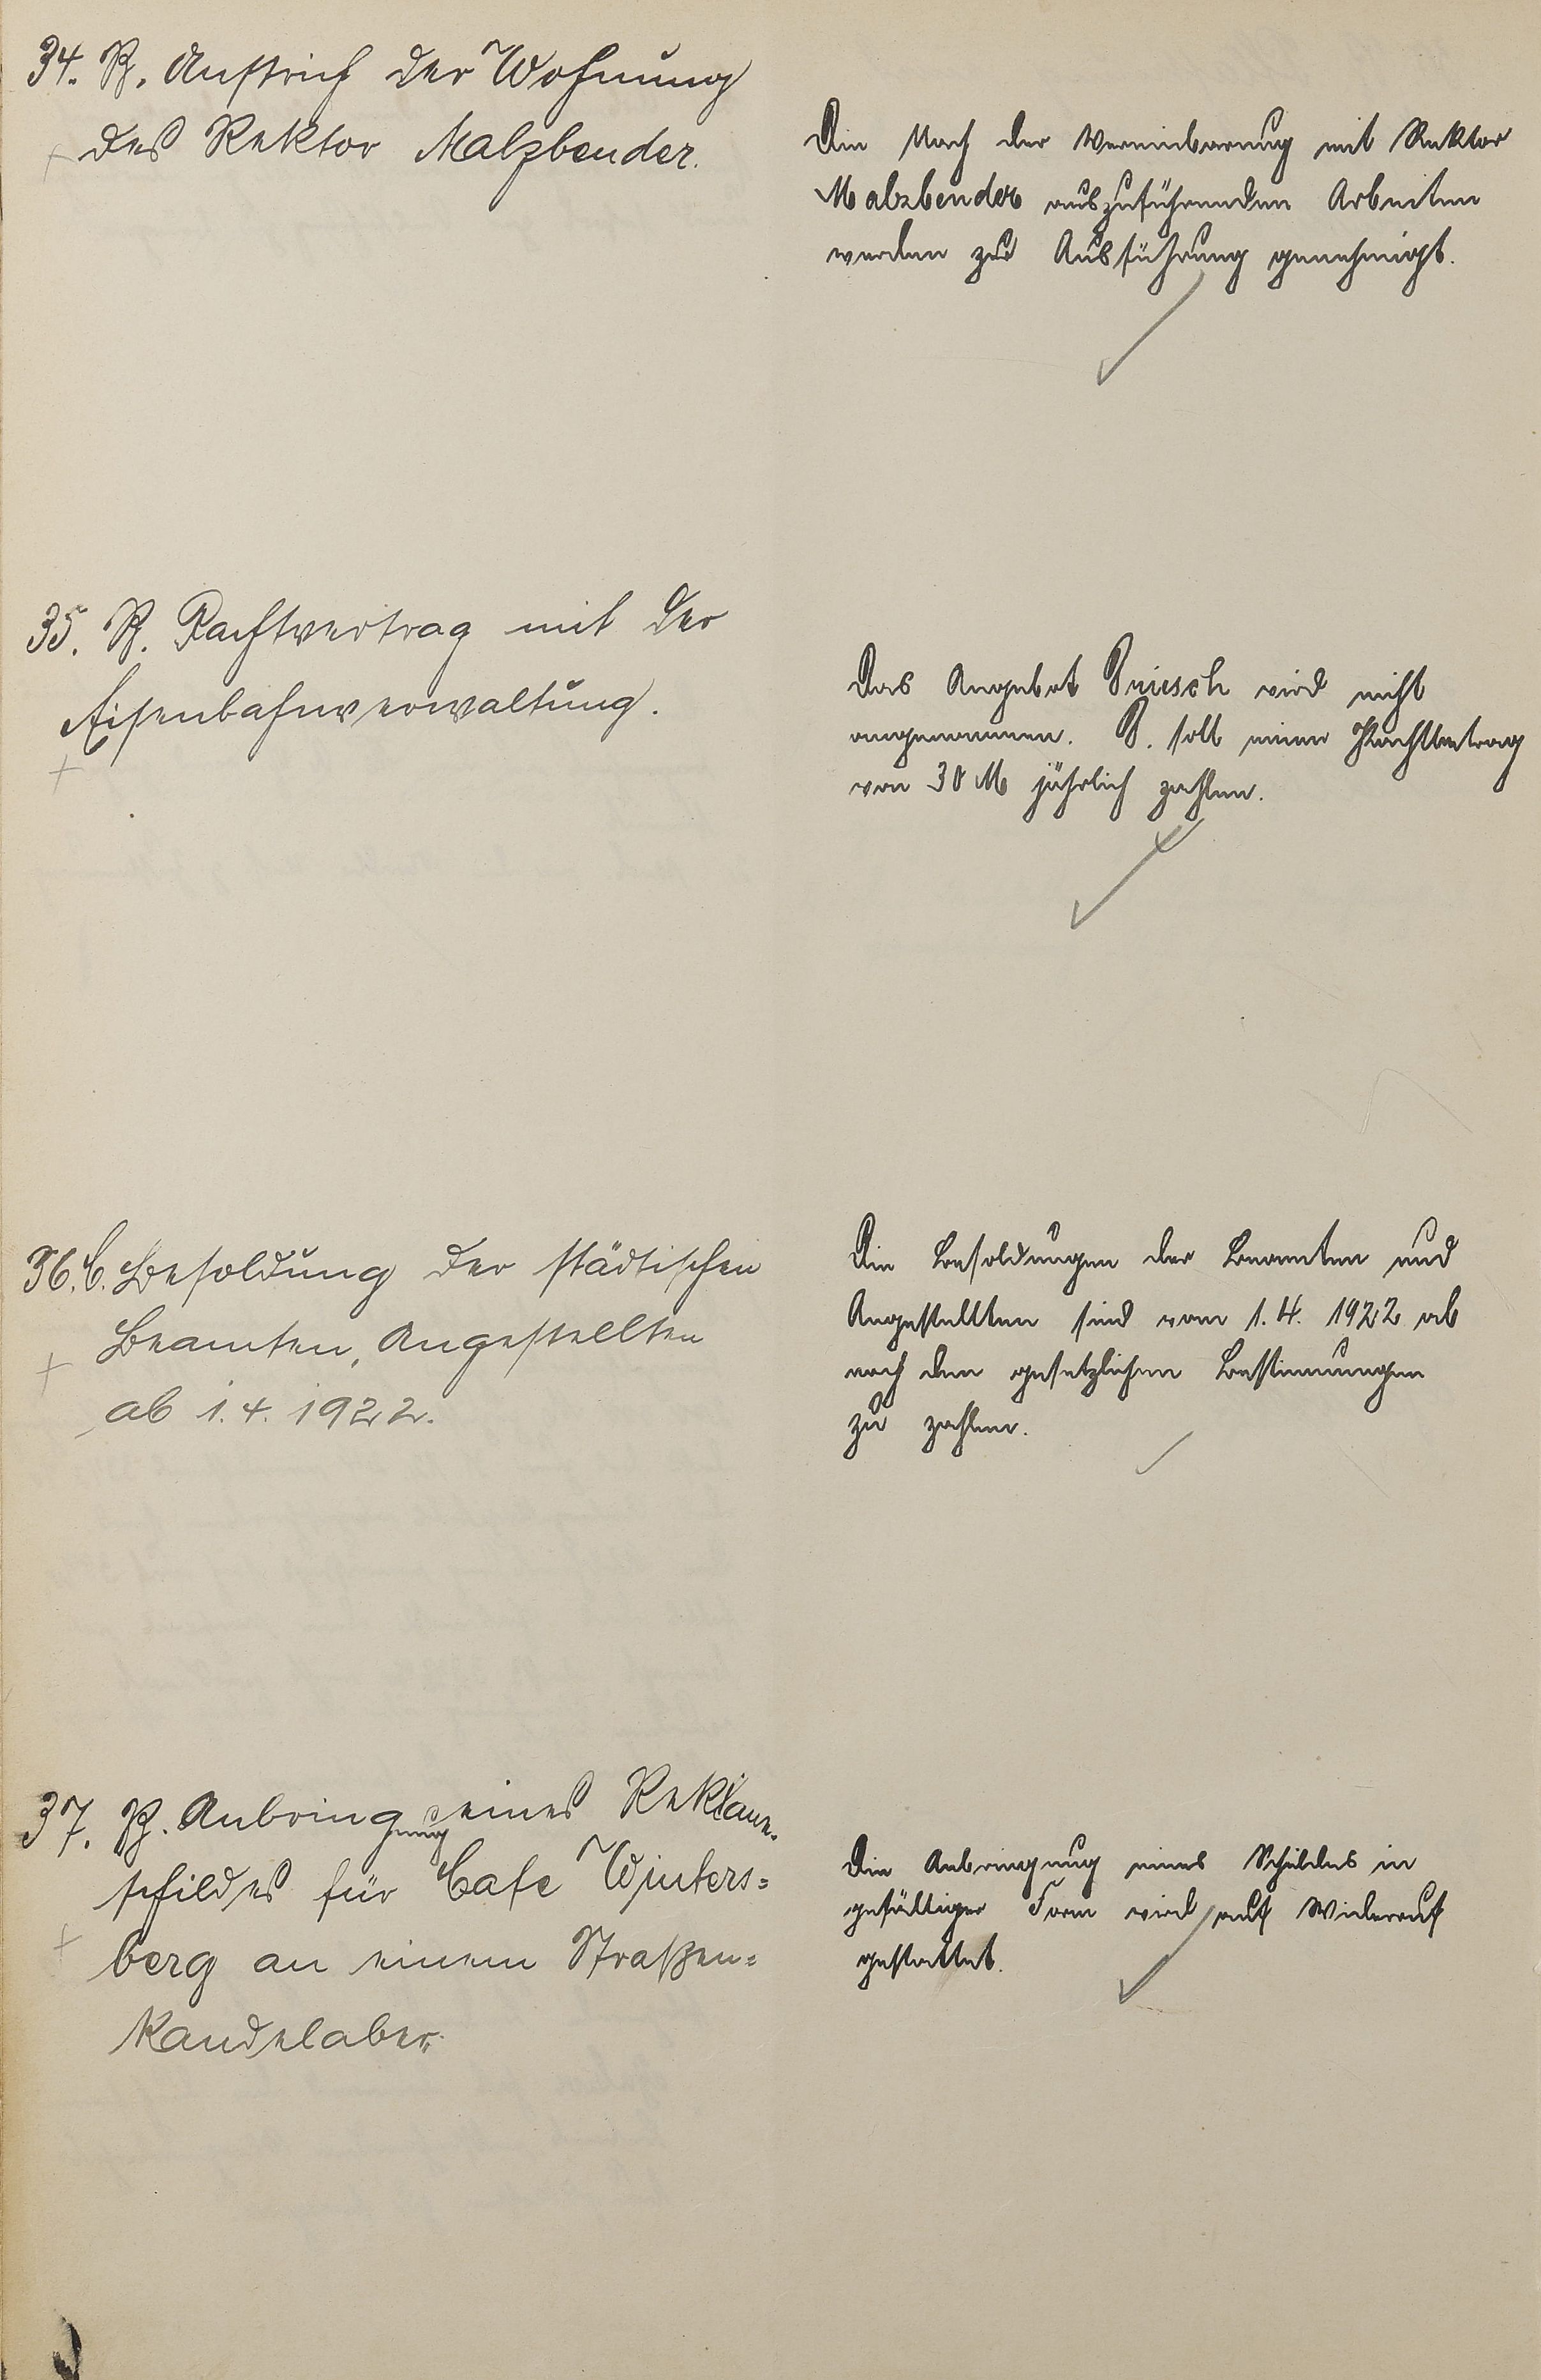 34. B. Anstrich der Wohnung
des Rektor Malzbender.
Die Nach der Vereinbarung mit Rektor
Malzbender auszuführenden Arbeiten
werden zur Ausführung genehmigt.
35. B. Pachtvertrag mit der
Eisenbahnverwaltung.
Das Angebot wird nicht
angenommen. soll einen Pachtbetrag
von 30 M jährlich zahlen.
36. C. Besoldung der städtischen
Beamten, Angestellten
ab 1.4.1922.
Die Besoldungen der Beamten und
Angestellten sind vom 1.4.1922 ab
nach den gesetzlichen Bestimmungen
zu zahlen.
37. B. Anbringung eines Reklame-
schildes für Cafe Winters=
berg an einem Straßen=
kandelaber.
Die Anbringung eines Schildes in
gefälliger Form wird auf Widerruf
gestattet.